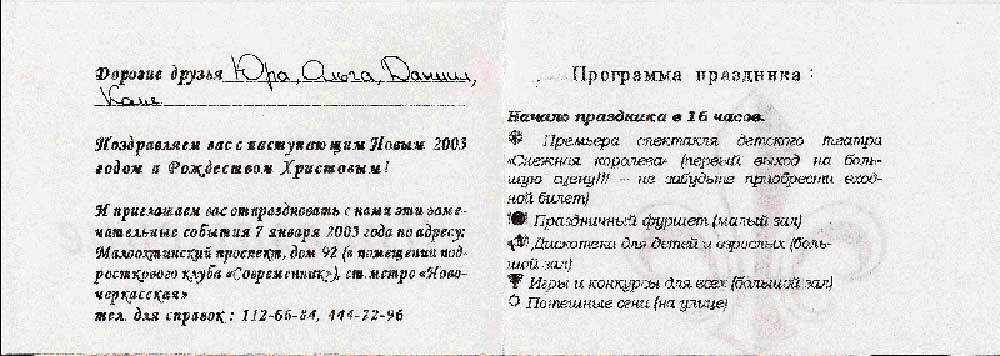 Дорогие друзья Юра, Ольга, Даниил,
Катя
Поздравляем вас с наступающим Новым 2003
годом и Рождеством Христовым!
И приглашаем вас отпраздновать с нами эти заме-
чательные события 7 января 2003 года по адресу:
Малоохтинский проспект, дом 92 (в помещении под-
росткового клуба «Современник»), ст. метро «Ново-
черкасская»
тел. для справок: 112-66-84, 444-22-96
Программа праздника:
Начало праздника в 16 часов.
Премьера спектакля детского театра
«Снежная королева» (первый выход на боль-
шую сцену!!! – не забудьте приобрести вход-
ной билет)
Праздничный фуршет (малый зал)
Дискотека для детей и взрослых (боль-
шой зал)
Игры и конкурсы для всех (большой зал)
Потешные огни (на улице)